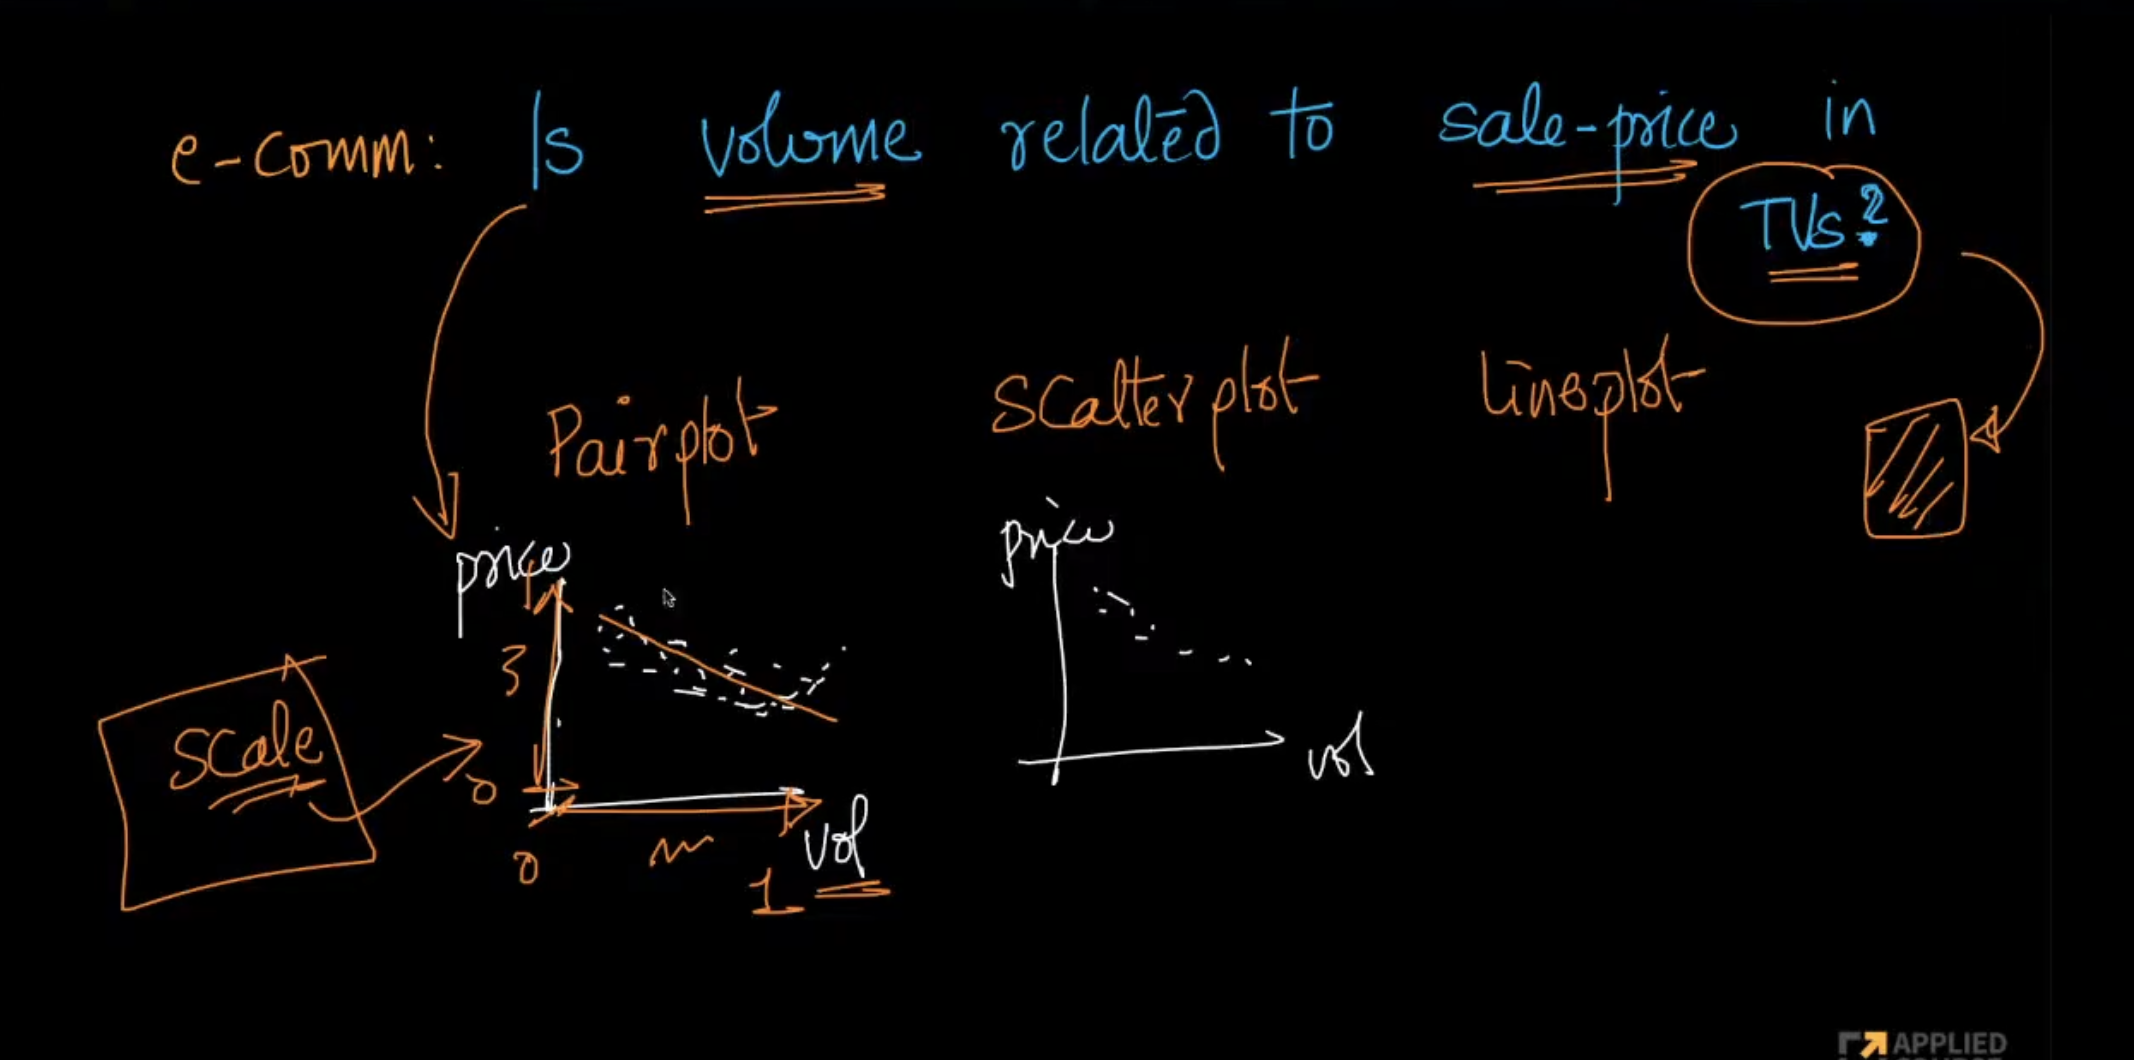 e-comm: Is volume related to sale-price in
TVs?
Pairplot scatterplot lineplot
price
price
3
scale
0
vol
vol
0
1
APPLIED